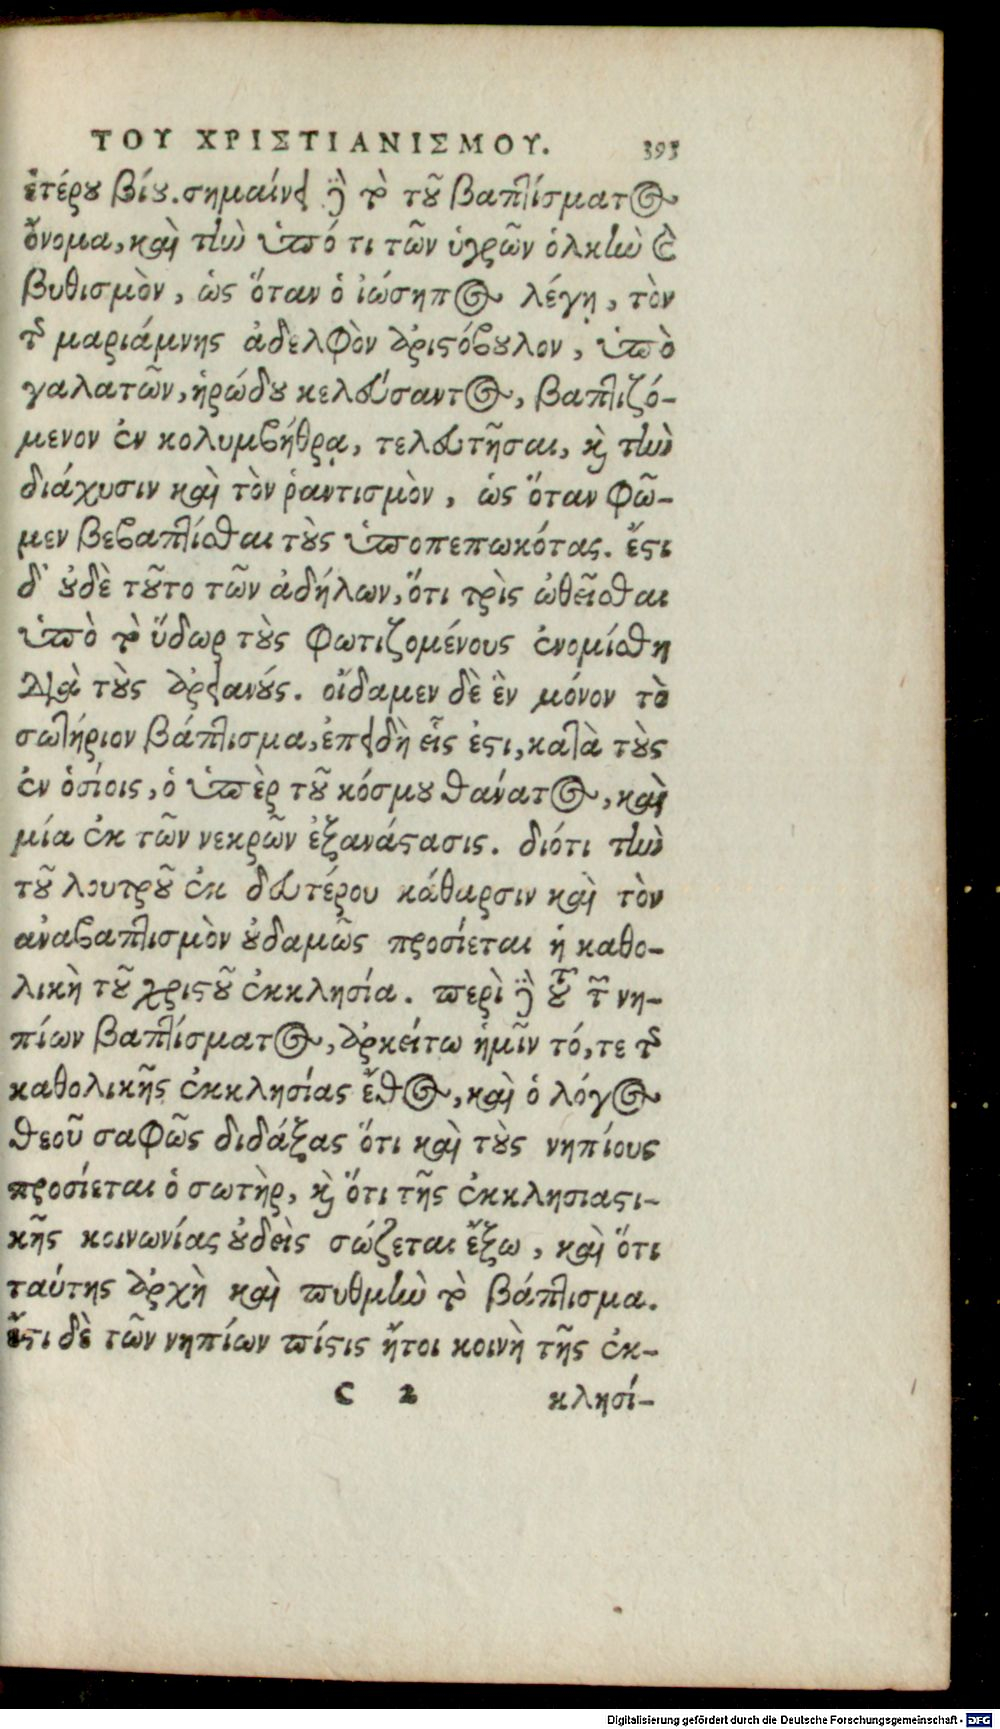 ΤΟΥ ΧΡΙΣΤΙΑΝΙΣΜΟΥ. 393
ἑτέρου βίου. σημαίνει δὲ τὸ τοῦ βαπτίσματος
ὄνομα, καὶ τὴν ὑπό τι τῶν ὑγρῶν ὁλκὴν καὶ
βυθισμὸν, ὡς ὅταν ὁ ἰώσηπος λέγῃ, τὸν
τῆς μαριάμνης ἀδελφὸν ἀριστόβουλον, ὑπὸ
γαλατῶν, ἡρώδου κελεύσαντος, βαπτιζό-
μενον ἐν κολυμβήθρᾳ, τελευτῆσαι, καὶ τὴν
διάχυσιν καὶ τὸν ῥαντισμὸν, ὡς ὅταν φῶ-
μεν βεβαπτίσθαι τοὺς ὑποπεπωκότας. ἔστι
δ' οὐδὲ τοῦτο τῶν ἀδήλων, ὅτι τρὶς ὠθεῖσθαι
ὑπὸ τὸ ὕδωρ τοὺς φωτιζομένους ἐνομίσθη
διὰ τοὺς ἀρειανούς. οἴδαμεν δὲ ἓν μόνον τὸ
σωτήριον βάπτισμα, ἐπειδὴ εἷς ἐστι, κατὰ τοὺς
ἐν ὁσίοις, ὁ ὑπὲρ τοῦ κόσμου θάνατος, καὶ
μία ἐκ τῶν νεκρῶν ἐξανάστασις. διότι τὴν
τοῦ λουτροῦ ἐκ δευτέρου κάθαρσιν καὶ τὸν
ἀναβαπτισμὸν οὐδαμῶς προσίεται ἡ καθο-
λικὴ τοῦ χριστοῦ ἐκκλησία. περὶ δὲ τοῦ τῶν νη-
πίων βαπτίσματος, ἀρκείτω ἡμῖν τό, τε τῆς
καθολικῆς ἐκκλησίας ἔθος, καὶ ὁ λόγος
θεοῦ σαφῶς διδάξας ὅτι καὶ τοὺς νηπίους
προσίεται ὁ σωτὴρ, καὶ ὅτι τῆς ἐκκλησιαστι-
κῆς κοινωνίας οὐδεὶς σώζεται ἔξω, καὶ ὅτι
ταύτης ἀρχὴ καὶ πυθμὴν τὸ βάπτισμα.
ἔστι δὲ τῶν νηπίων πίστις ἤτοι κοινὴ τῆς ἐκ-
C 2 κλησί-
Digitalisierung gefördert durch die Deutsche Forschungsgemeinschaft - DFG